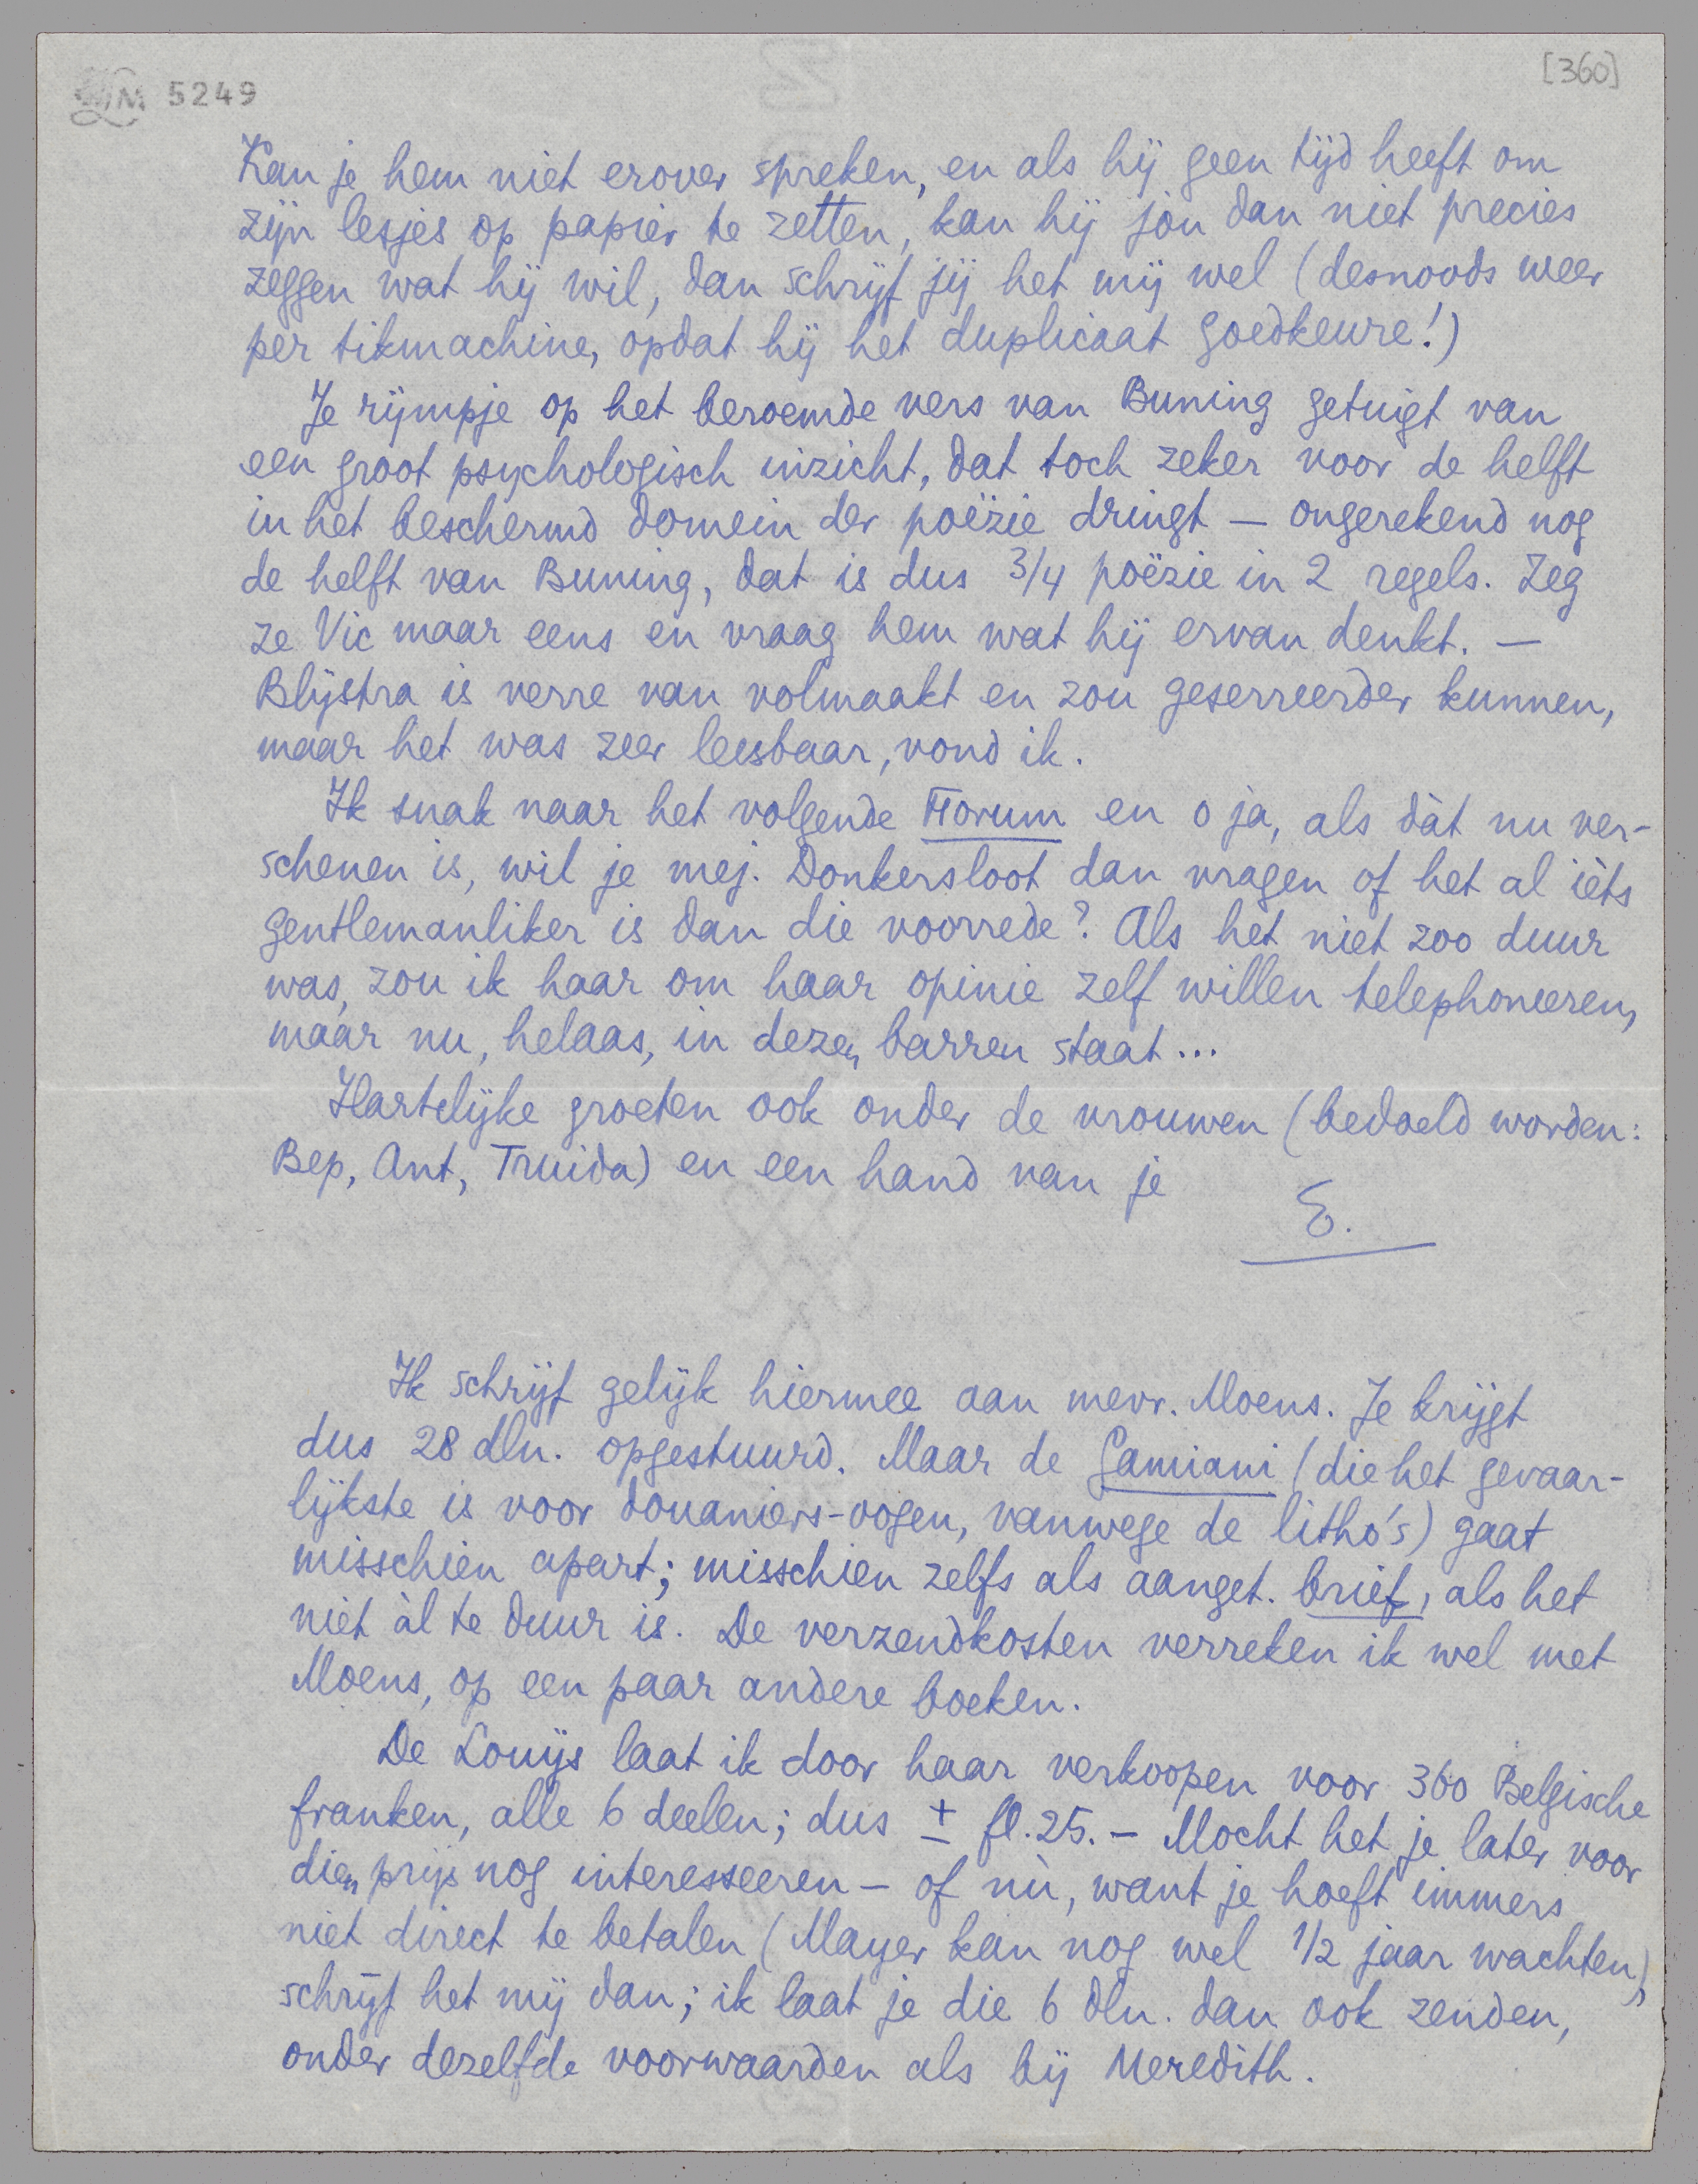 LM 5249
[360]
Kan je hem niet erover spreken, en als hij geen tijd heeft om
zijn lesjes op papier te zetten, kan hij jòu dan niet precies
zeggen wat hij wil, dan schrijf jij het mij wel (desnoods weer
per tikmachine, opdat hij het duplicaat goedkeure!)
Je rijmpje op het beroemde vers van Buning getuigt van
een groot psychologisch inzicht, dat toch zeker voor de helft
in het beschermd domein der poëzie dringt — ongerekend nog
de helft van Buning, dat is dus 3/4 poëzie in 2 regels. Zeg
ze Vic maar eens en vraag hem wat hij ervan denkt. —
Blijstra is verre van volmaakt en zou geserreerder kunnen,
maar het was zeer leesbaar, vond ik.
Ik snak naar het volgende Forum en o ja, als dàt nu ver-
schenen is, wil je mej. Donkersloot dan vragen of het al ièts
gentlemanliker is dan die voorrede? Als het niet zoo duur
was, zou ik haar om haar opinie zelf willen telephoneeren,
maar nu, helaas, in dezen barren staat...
Hartelijke groeten ook onder de vrouwen (bedoeld worden:
Bep, Ant, Truida) en een hand van je
E.
Ik schrijf gelijk hiermee aan mevr. Moens. Je krijgt
dus 28 dln. opgestuurd. Maar de Gamiani (die het gevaar-
lijkste is voor douaniers-oogen, vanwege de litho's) gaat
misschien apart; misschien zelfs als aanget. brief, als het
niet àl te duur is. De verzendkosten verreken ik wel met
Moens, op een paar andere boeken.
De Louÿs laat ik door haar verkoopen voor 360 Belgische
franken, alle 6 deelen; dus ± fl. 25.— Mocht het je later voor
dien prijs nog interesseeren — of nù, want je hoeft immers
niet direct te betalen (Mayer kan nog wel 1/2 jaar wachten),
schrijf het mij dan; ik laat je die 6 dln. dan ook zenden,
onder dezelfde voorwaarden als bij Meredith.